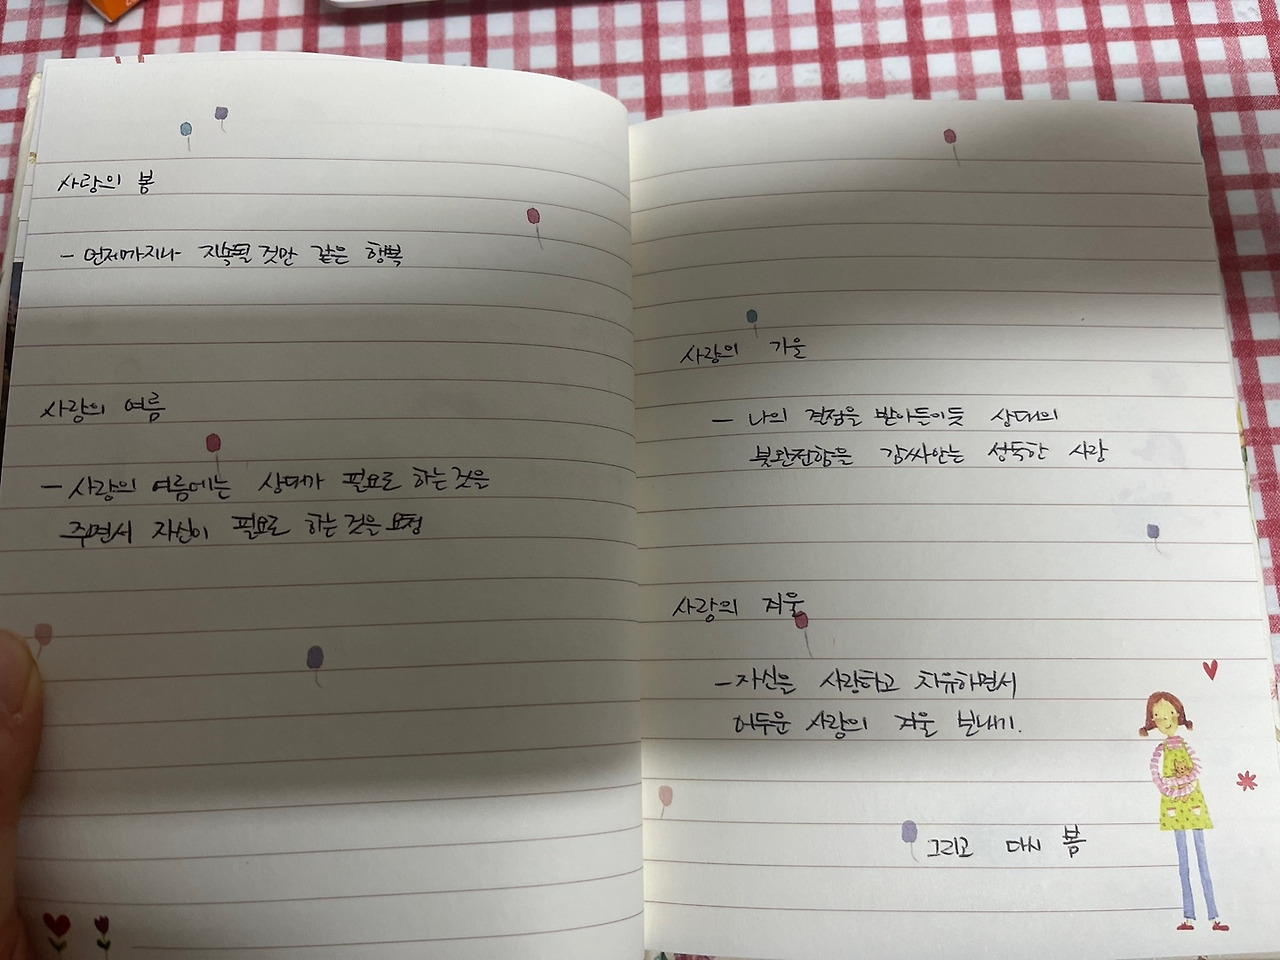 사랑의 봄
- 언제까지나 지속될 것만 같은 행복
사랑의 여름
- 사랑의 여름에는 상대가 필요로 하는 것을
주면서 자신이 필요로 하는 것을 요청
사랑의 가을
- 나의 결점을 받아들이듯 상대의
불완전함을 감싸안는 성숙한 사랑
사랑의 겨울
- 자신을 사랑하고 치유하면서
어두운 사랑의 겨울 보내기.
그리고 다시 봄